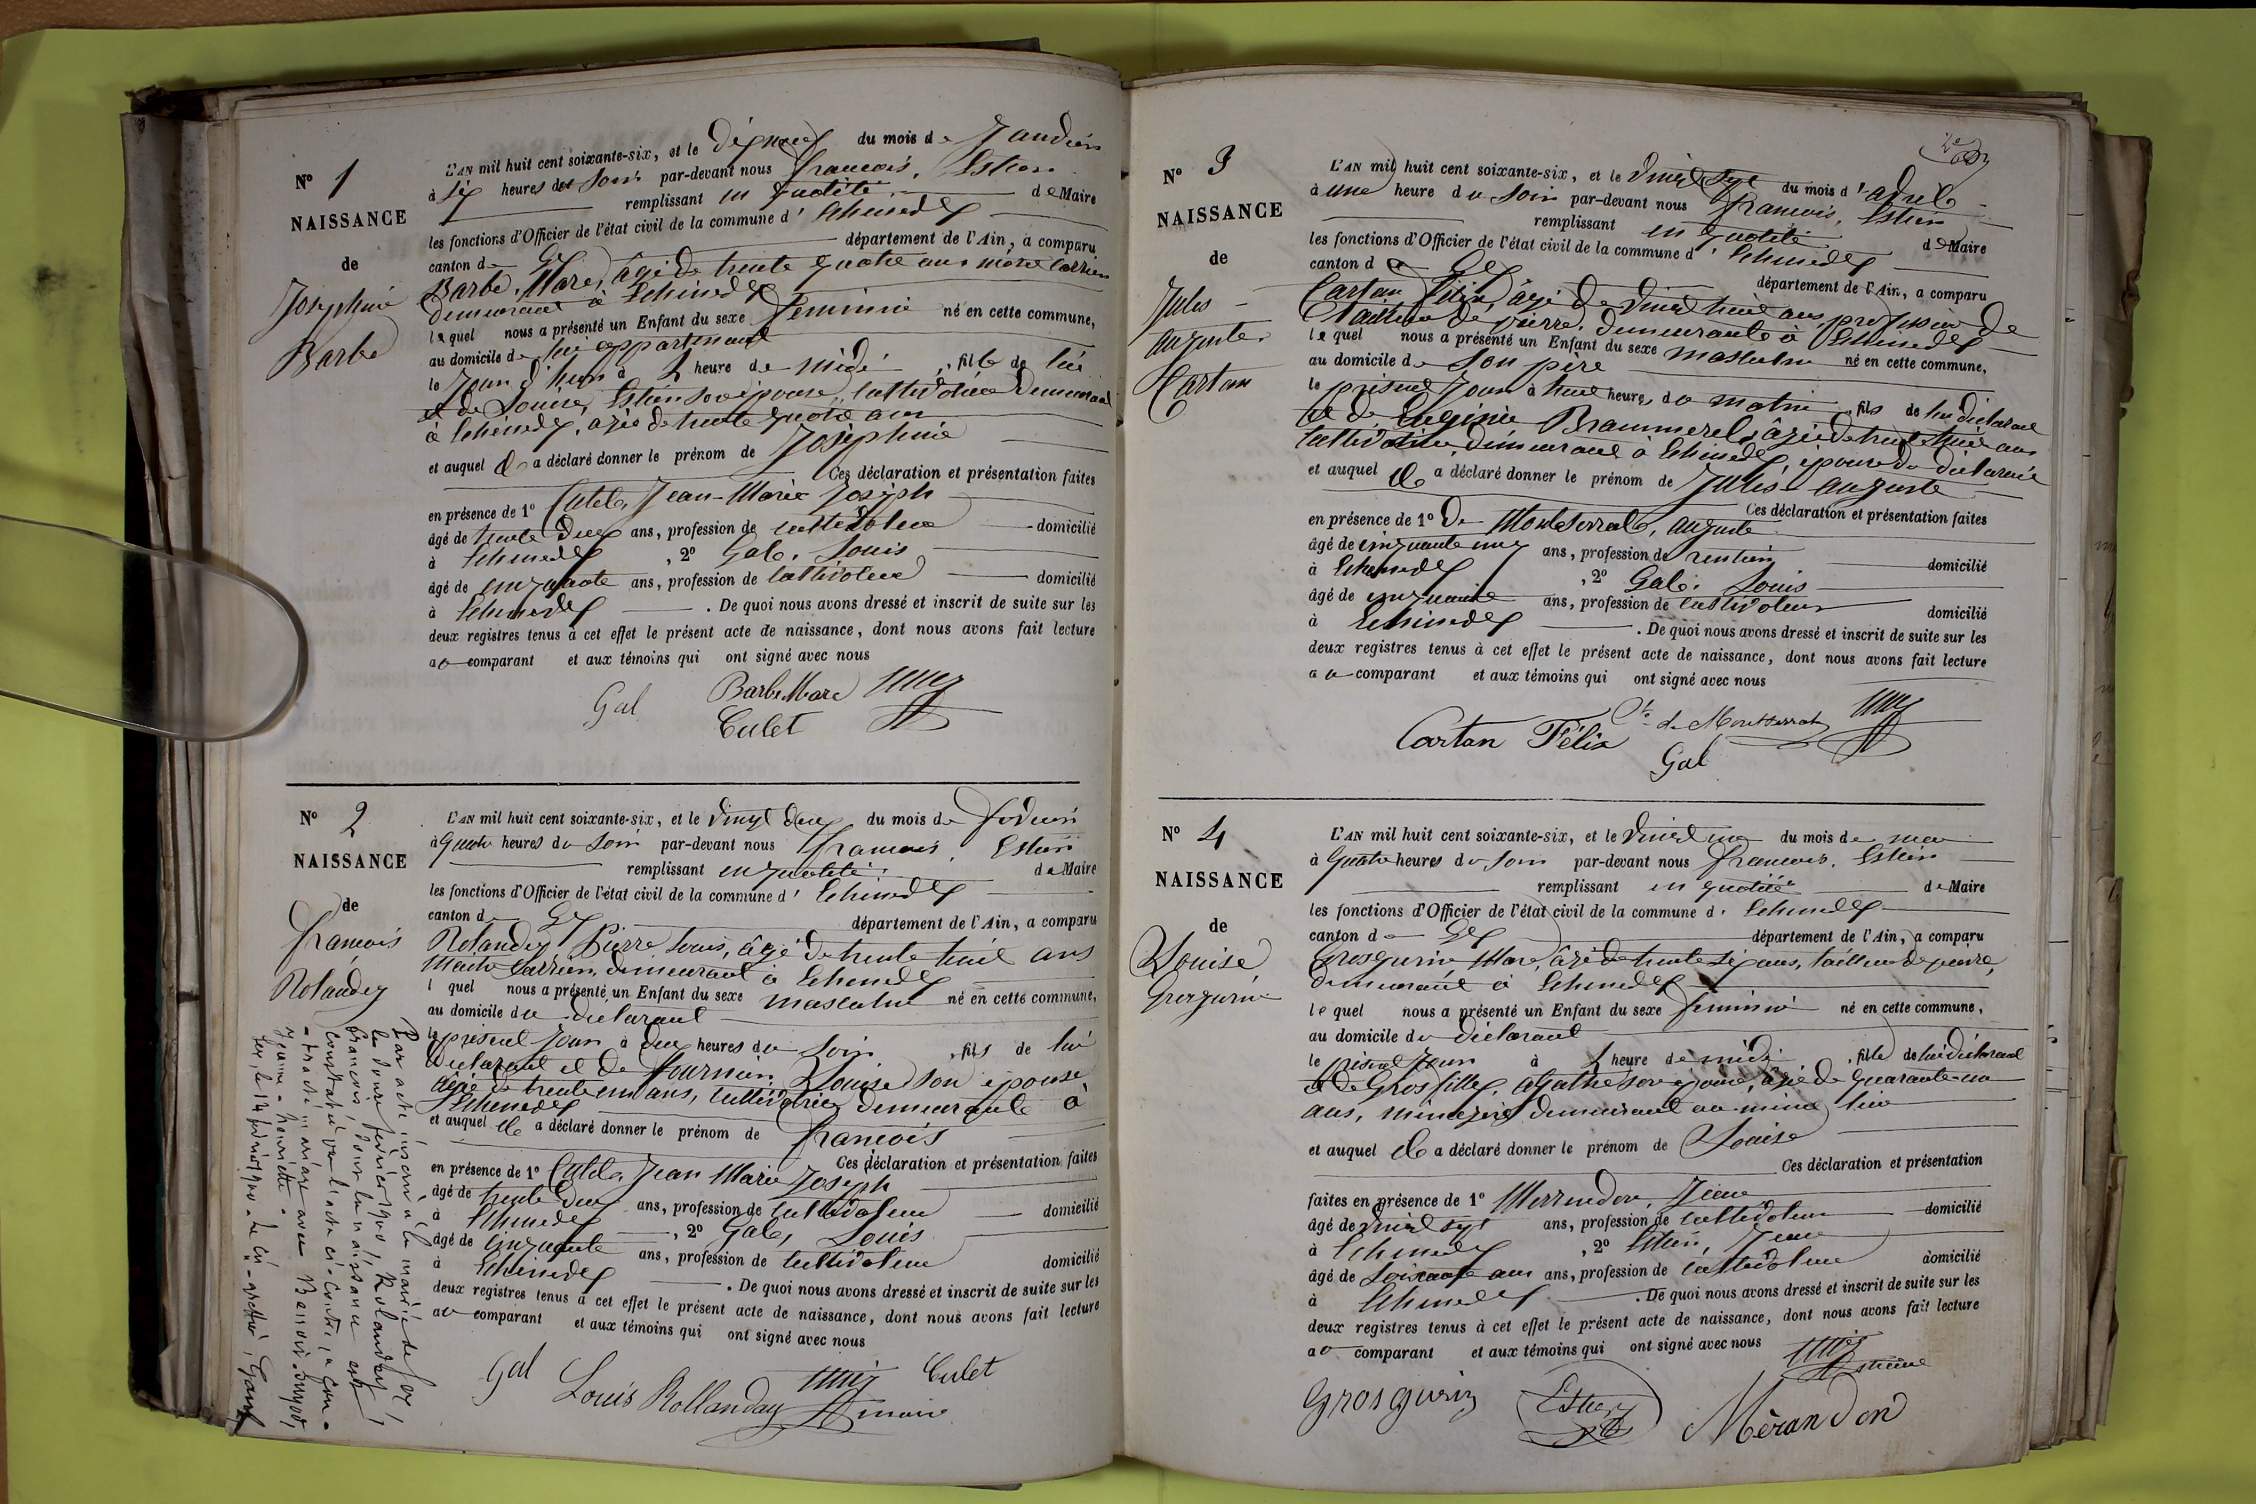 N° 1
NAISSANCE
de
Joséphine
Barbe
L'AN mil huit cent soixante-six, et le dix neuf du mois de Janvier
à six heures du soir par-devant nous françois, Estier
remplissant en qualité de Maire
les fonctions d'Officier de l'état civil de la commune d' Echenevex
canton de Gex département de l'Ain, a comparu
Barbe, Marc, âgé de trente quatre ans
demeurant à Echenevex
lequel nous a présenté un Enfant du sexe féminin né en cette commune,
au domicile de lui appartenant
le Jour d'hier à 1 heure de midi, fille de lui
et de Louise, Estier son épouse, cultivatrice demeurant
à Echenevex, agée de trente quatre ans
et auquel il a déclaré donner le prénom de Joséphine
Ces déclaration et présentation faites
en présence de 1° Culet, Jean-Marie Joseph
âgé de trente deux ans, profession de cultivateur domicilié
à Echenevex, 2° Gal, Louis
âgé de cinquante ans, profession de cultivateur domicilié
à Echenevex. De quoi nous avons dressé et inscrit de suite sur les
deux registres tenus à cet effet le présent acte de naissance, dont nous avons fait lecture
au comparant et aux témoins qui ont signé avec nous
Gal Barbe Marc
Culet
N° 2
NAISSANCE
de
françois
Rolandey
L'AN mil huit cent soixante-six, et le vingt deux du mois de février
à quatre heures du soir par-devant nous françois, Estier
remplissant en qualité de Maire
les fonctions d'Officier de l'état civil de la commune d' Echenevex
canton de Gex département de l'Ain, a comparu
Rolandey Pierre Louis, âgé de trente huit ans
Maître Carrier, demeurant à Echenevex
l quel nous a présenté un Enfant du sexe masculin né en cette commune,
au domicile du déclarant
le présent Jour à deux heures du soir, fils de lui
déclarant et de Fournier, Louise son épouse
âgée de trente un ans, cultivatrice demeurante à
Echenevex
et auquel il a déclaré donner le prénom de françois
Ces déclaration et présentation faites
en présence de 1° Culet, Jean Marie Joseph
âgé de trente deux ans, profession de cultivateur domicilié
à Echenevex, 2° Gal, Louis
âgé de cinquante ans, profession de cultivateur domicilié
à Echenevex. De quoi nous avons dressé et inscrit de suite sur les
deux registres tenus à cet effet le présent acte de naissance, dont nous avons fait lecture
au comparant et aux témoins qui ont signé avec nous
Gal Louis Rollanday Culet
maire
Par acte inscrit à la mairie de Gex,
le douze février, Rolandey,
François, dont la naissance est
constatée par l'acte ci-contre, a con-
tracté mariage avec
Jeanne-Henriette.
Gex, le 14 février. Le greffier,
N° 3
NAISSANCE
de
Jules
auguste
Cartan
L'AN mil huit cent soixante-six, et le vingt sept du mois d'avril
à une heure du soir par-devant nous françois, Estier
remplissant en qualité de Maire
les fonctions d'Officier de l'état civil de la commune d' Echenevex
canton de Gex département de l'Ain, a comparu
Cartan, Félix, âgé de vingt huit ans, profession de
tailleur de pierre, demeurante à Echenevex
lequel nous a présenté un Enfant du sexe masculin né en cette commune,
au domicile de son père
le présent Jour à huit heures du matin, fils de lui déclarant
et de Eugénie agée de trente huit ans
cultivatrice, demeurant à Echenevex, épouse du déclarant
et auquel il a déclaré donner le prénom de Jules auguste
Ces déclaration et présentation faites
en présence de 1° De Montserrat, auguste
âgé de cinquante ans, profession de rentier domicilié
à Echenevex, 2° Gal, Louis
âgé de cinquante ans, profession de cultivateur domicilié
à Echenevex. De quoi nous avons dressé et inscrit de suite sur les
deux registres tenus à cet effet le présent acte de naissance, dont nous avons fait lecture
au comparant et aux témoins qui ont signé avec nous
Cartan Félix de Montserrat
Gal
N° 4
NAISSANCE
de
Louise
Grosgurin
L'AN mil huit cent soixante-six, et le vingt un du mois de mai
à quatre heures du soir par-devant nous françois, Estier
remplissant en qualité de Maire
les fonctions d'Officier de l'état civil de la commune d' Echenevex
canton de Gex département de l'Ain, a comparu
Grosgurin Marc, âgé de trente six ans, tailleur de pierre,
demeurant à Echenevex
lequel nous a présenté un Enfant du sexe féminin né en cette commune,
au domicile du déclarant
le présent Jour à 1 heure de midi, fille de lui déclarant
et de Grosfilley, agathe son épouse, âgée de quarante un
ans, ménagère demeurant au même lieu
et auquel il a déclaré donner le prénom de Louise
Ces déclaration et présentation
faites en présence de 1° Merrandon, Jean
âgé de vingt sept ans, profession de cultivateur domicilié
à Echenevex, 2° Estier, Jean
âgé de Soixante ans ans, profession de cultivateur domicilié
à Echenevex. De quoi nous avons dressé et inscrit de suite sur les
deux registres tenus à cet effet le présent acte de naissance, dont nous avons fait lecture
au comparant et aux témoins qui ont signé avec nous
Grosgurin Estier Mérandon